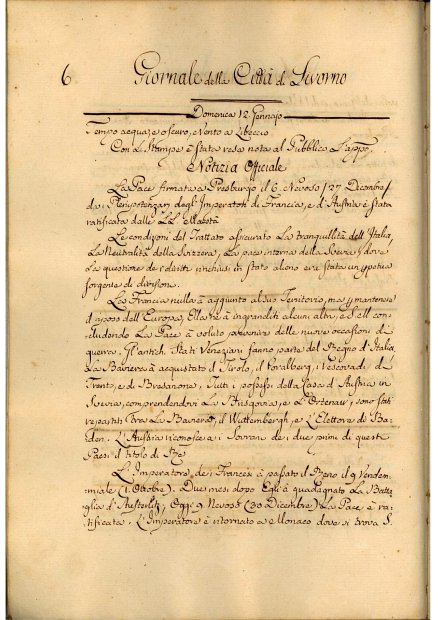 6 Giornale della Città di Livorno
Domenica 12. Gennajo
Tempo acqua, e oscuro, Vento a Libeccio
Con le Stampe è stata resa nota al Pubblico l'appo,
Notizia Officiale
La Pace firmata a Presburgo il 6. Nevoso (27 Dicembre)
dai Plenipotenzarj degl'Imperatori di Francia, e d'Austria è stata
ratificata dalle LL. Maestà
Le condizioni del Trattato assicurano la tranquillità dell'Italia,
La Neutralità della Svizzera, La pace interna della Svevia, dove
La questione de' diritti in stato alieno era stata un'
sorgente di divisioni.
La Francia nulla à aggiunto al suo Territorio, ma mantenere
il riposo dell'Europa, Ella ne à ingranditi alcuni altri, e con
cludendo la Pace à voluto prevenire delle nuove occasioni di
guerra. Gl'antichi Stati Veneziani fanno parte del Regno d'Italia,
La Baviera à acquistato il Tirolo, il Voralberg, i Vescovadi di
Trento, e di Bressanone, Tutti i possessi della Casa d'Austria in
Svevia, comprendendovi la Brisgovia, e l'Ortenau, sono stati
repartiti tra la Baviera, il Wuttembergh, e l'Elettore di Ba-
den. L'Austria riconosce ai Sovrani dei due primi di questi
Paesi il titolo di Re
L'Imperatore dei Francesi à passato il Reno il 9 Vendem-
miale (1. Ottobre). Due mesi dopo Egli à guadagnato la Batta-
glia d'Austerlitz, Oggi 9 Nevoso (30 Dicembre) La Pace è ra-
tificata. L'Imperatore è ritornato a Monaco dove si trova S.